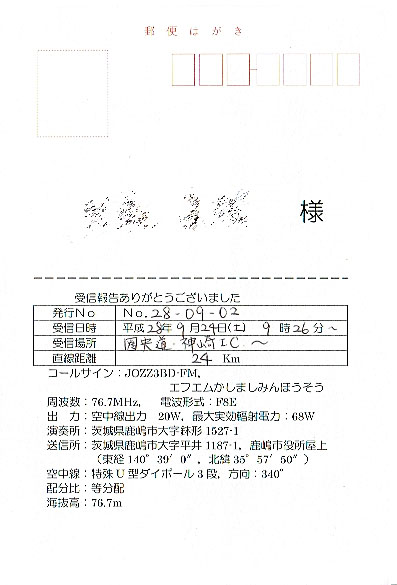 郵便はがき
様
受信報告ありがとうございました
発行No No.28-09-02
受信日時 平成28年9月24日(土) 9時26分~
受信場所 圏央道 神崎I.C. ~
直線距離 24 Km
コールサイン:JOZZ3BD-FM,
エフエムかしましみんほうそう
周波数:76.7MHz, 電波形式:F8E
出 力:空中線出力 20W,最大実効輻射電力:68W
演奏所:茨城県鹿嶋市大字鉢形1527-1
送信所:茨城県鹿嶋市大字平井1187-1,鹿嶋市役所屋上
(東経140°39′0″,北緯35°57′50″)
空中線:特殊U型ダイポール3段,方向:340°
配分比:等分配
海抜高:76.7m